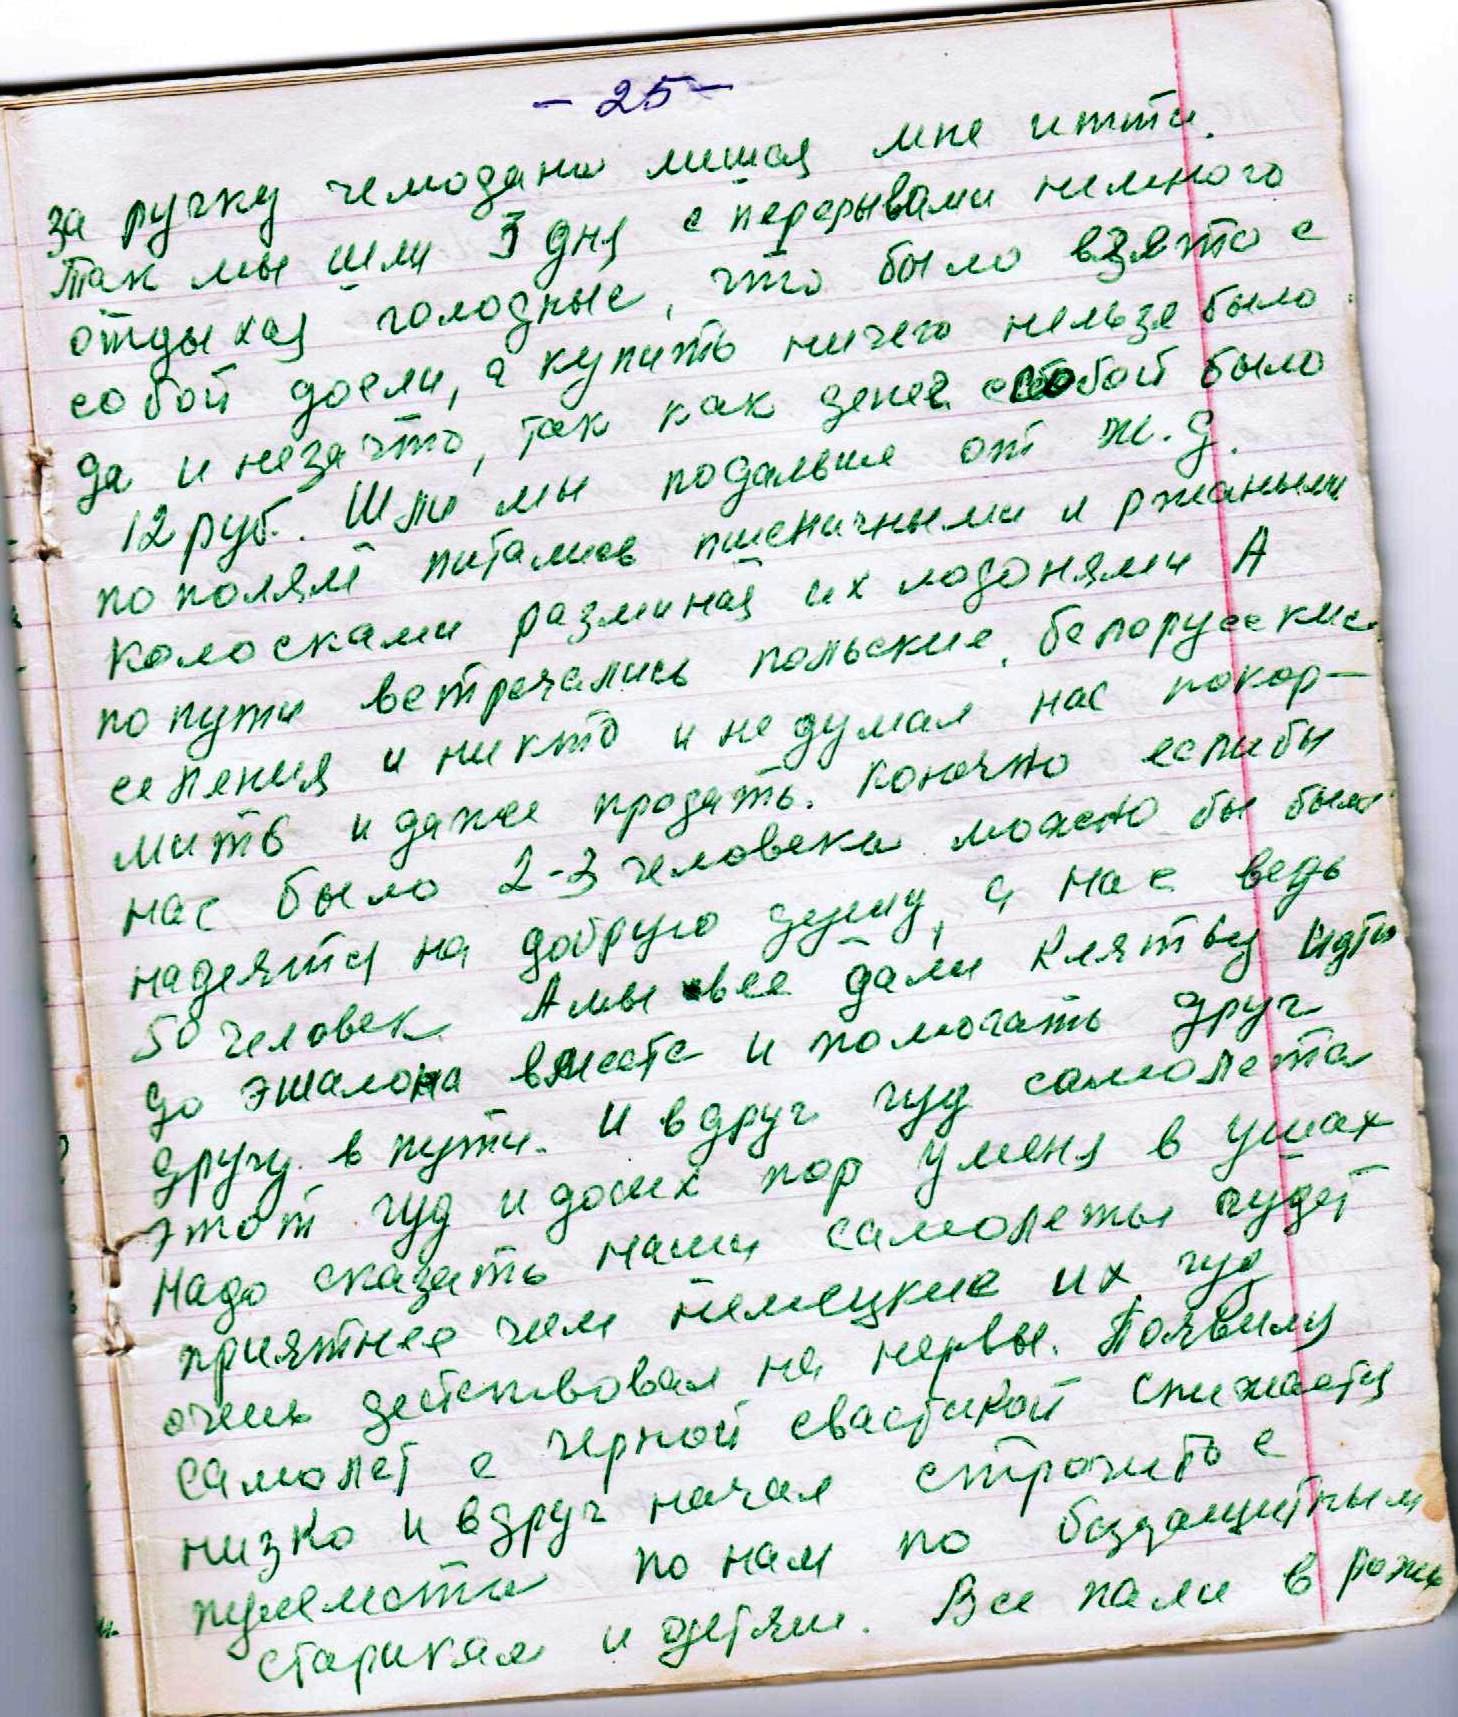 - 25 -
за ручку чемодана мешая мне итти.
Так мы шли 3 дня с перерывами немного
отдыхая голодные, что было взято с
собой доели, а купить ничего нельзя было
да и незачто, так как денег с собой было
12 руб. Шли мы подальше от ж.д.
по полям питались пшеничными и ржаными
колосками разминая их ладонями А
по пути встречались польские, белорусские
селения и никто и не думал нас покор-
мить и даже продать. Конечно еслибы
нас было 2-3 человека можно бы было
надеятся на добрую душу, а нас ведь
50 человек А мы все дали клятву идти
до эшалона вместе и помогать друг
другу в пути. И вдруг гуд самолета
этот гуд и досих пор у меня в ушах
Надо сказать наши самолеты гудят
приятнее чем немецкие их гуд
очень действовал на нервы. Появился
самолет с черной свастикой снижается
низко и вдруг начал строчить с
пулемета по нам по беззащитным
старикам и детям. Все пали в рожь